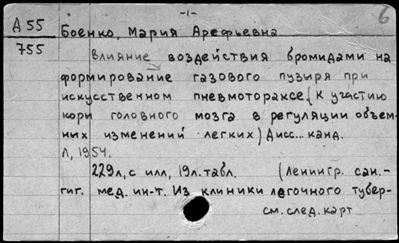 -1-
6
А 55
755
Боенко, Мария Арефьевна
Влияние воздействия бромидами на
формирование газового пузыря при
искусственном пневмотораксе (К участию
кори головного мозга в регуляции объем-
ных изменений легких) Дисс... канд.
Л, 1954.
229л, с илл, 19л. табл. (Ленингр. сан.-
гиг. мед. ин-т. Из клиники легочного тубер-
см. след. карт